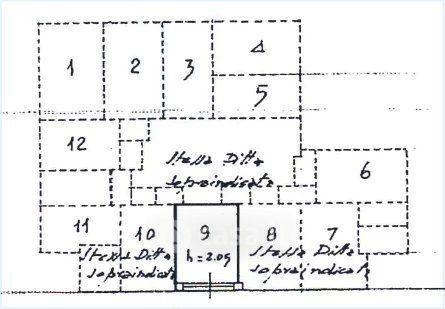 1
2
3
4
5
12
Stessa Ditta
sopraindicata
6
11
10
9
8
7
h = 2.05
Stessa Ditta
sopraindicata
Stessa Ditta
sopraindicata